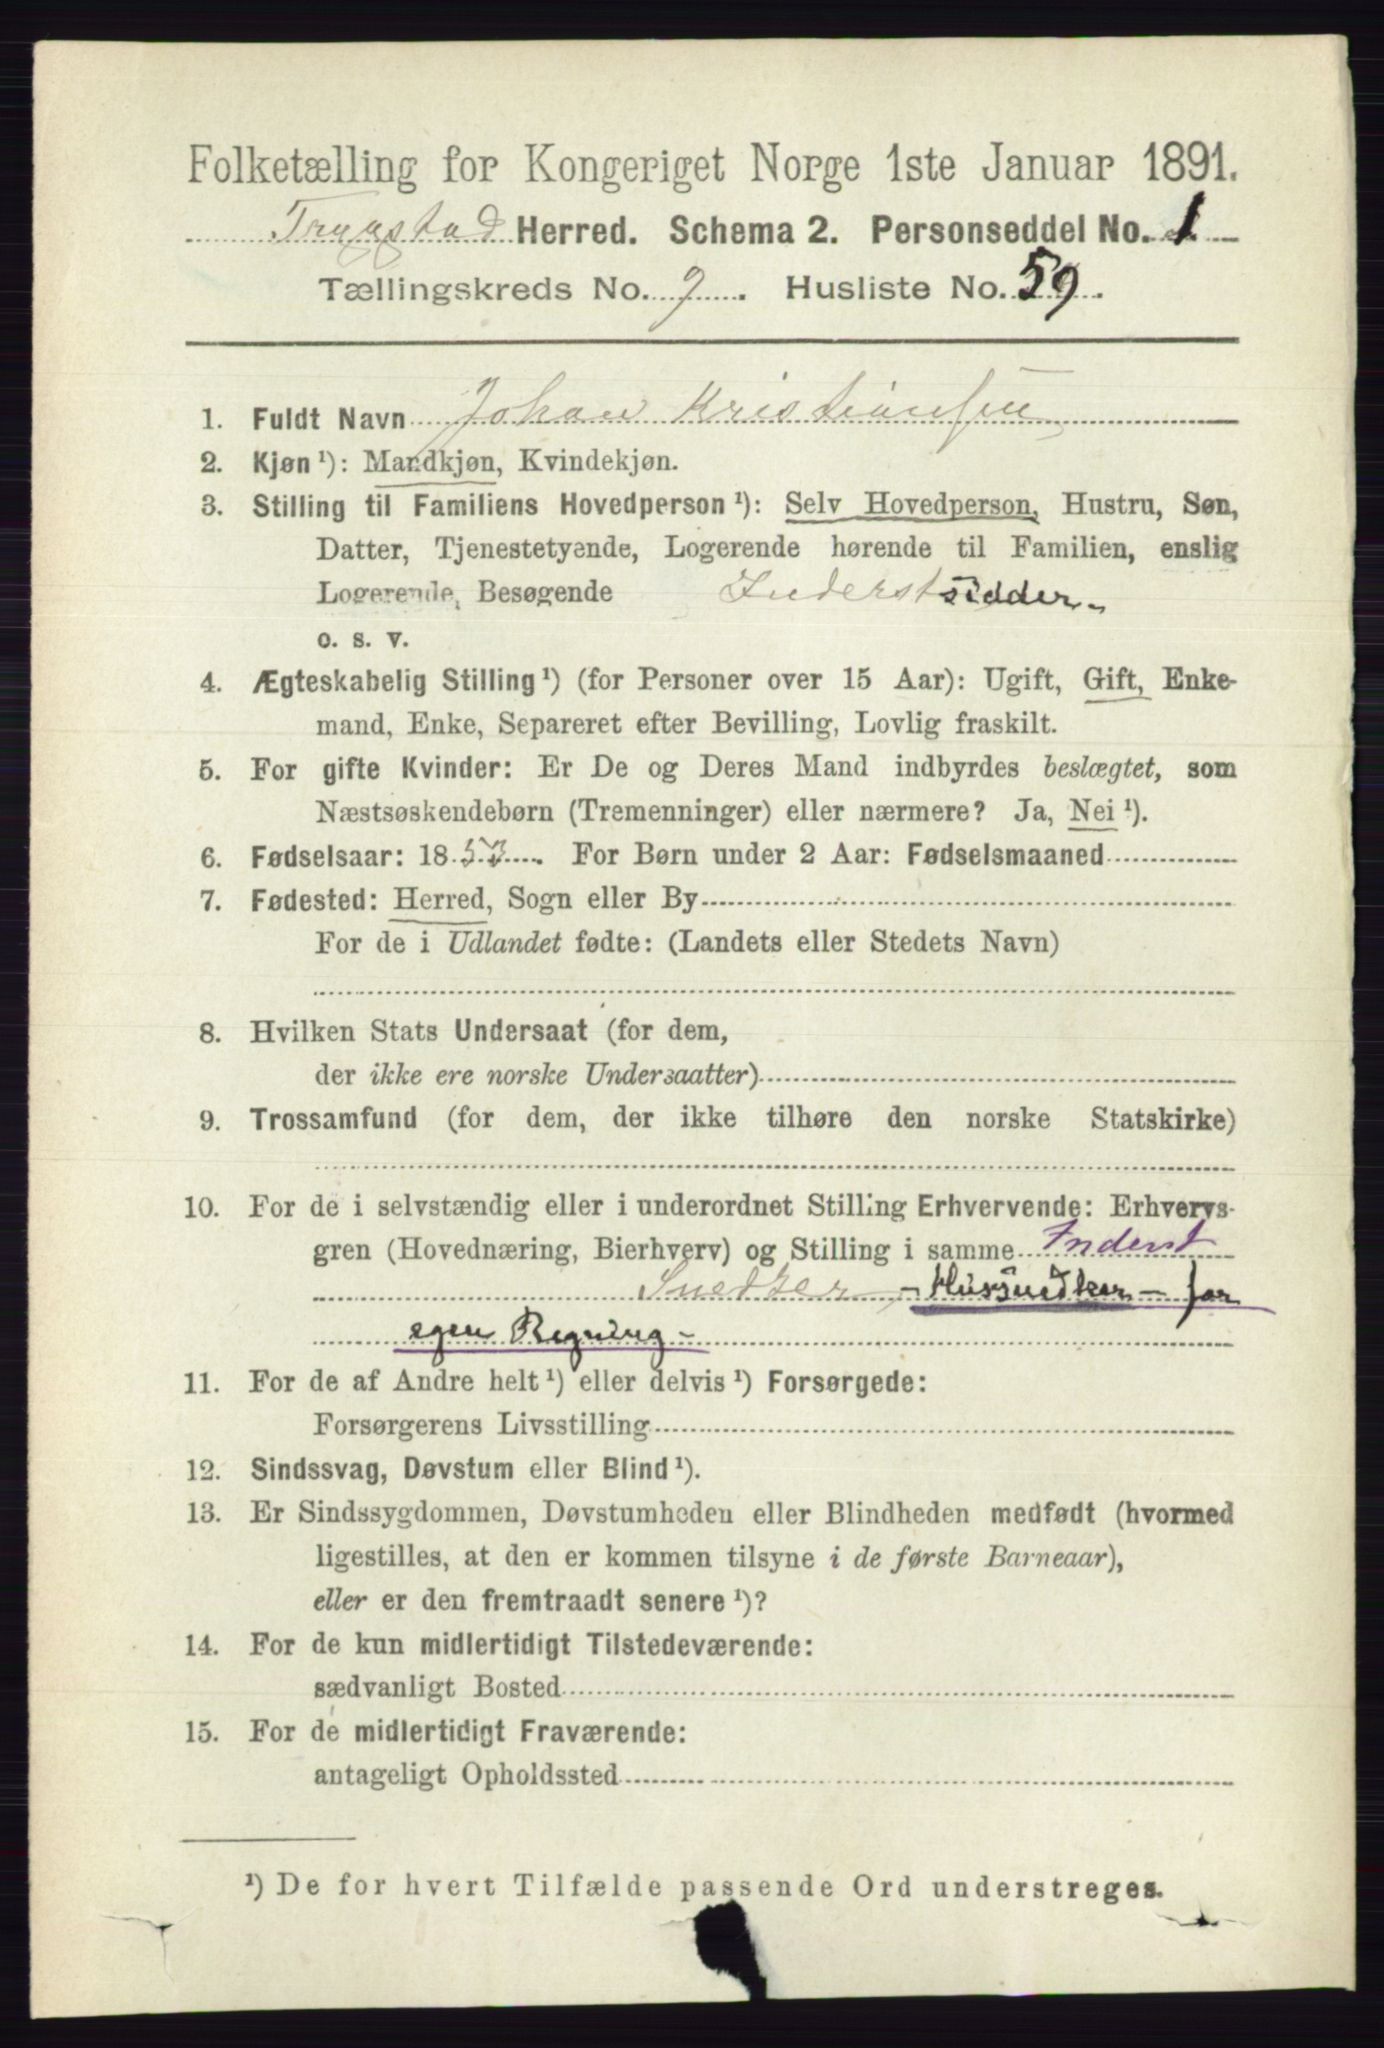 Folketælling for Kongeriget Norge 1ste Januar 1891.
Trygstad Herred. Schema 2. Personseddel No. 1
Tællingskreds No. 9. Husliste No. 59.
1. Fuldt Navn Johan Kristiansen
2. Kjøn ¹): Mandkjøn, Kvindekjøn.
3. Stilling til Familiens Hovedperson ¹): Selv Hovedperson, Hustru, Søn,
Datter, Tjenestetyende, Logerende hørende til Familien, enslig
Logerende, Besøgende Inderstsidder.
o. s. v.
4. Ægteskabelig Stilling ¹) (for Personer over 15 Aar): Ugift, Gift, Enke-
mand, Enke, Separeret efter Bevilling, Lovlig fraskilt.
5. For gifte Kvinder: Er De og Deres Mand indbyrdes beslægtet, som
Næstsøskendebørn (Tremenninger) eller nærmere? Ja, Nei ¹).
6. Fødselsaar: 1853. For Børn under 2 Aar: Fødselsmaaned
7. Fødested: Herred, Sogn eller By
For de i Udlandet fødte: (Landets eller Stedets Navn)
8. Hvilken Stats Undersaat (for dem,
der ikke ere norske Undersaatter)
9. Trossamfund (for dem, der ikke tilhøre den norske Statskirke)
10. For de i selvstændig eller i underordnet Stilling Erhvervende: Erhvervs-
gren (Hovednæring, Bierhverv) og Stilling i samme Inderst
Snedker - Hussnedker - for
egen Regning -
11. For de af Andre helt ¹) eller delvis ¹) Forsørgede:
Forsørgerens Livsstilling
12. Sindssvag, Døvstum eller Blind ¹).
13. Er Sindssygdommen, Døvstumheden eller Blindheden medfødt (hvormed
ligestilles, at den er kommen tilsyne i de første Barneaar),
eller er den fremtraadt senere ¹)?
14. For de kun midlertidigt Tilstedeværende:
sædvanligt Bosted
15. For de midlertidigt Fraværende:
antageligt Opholdssted
¹) De for hvert Tilfælde passende Ord understreges.